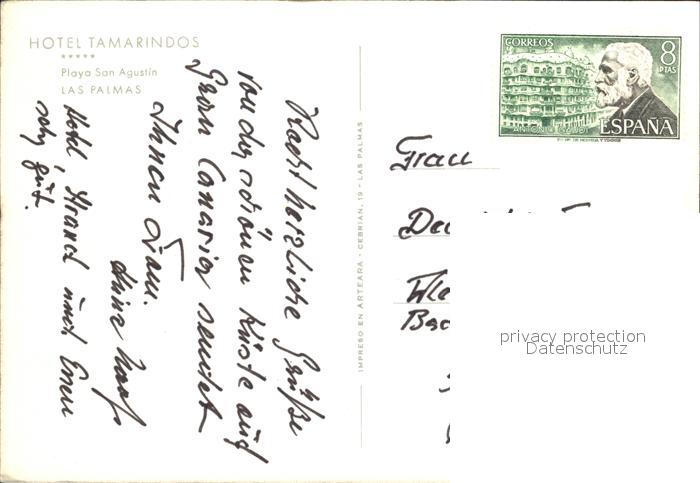 HOTEL TAMARINDOS
★★★★★
Playa San Agustín
LAS PALMAS
Recht herzliche Grüße
von der schönen Küste auf
Gran Canaria sendet
Ihnen Fam.
Hotel, Strand und Essen
sehr gut.
IMPRESO EN ARTEARA - CEBRIAN, 19 - LAS PALMAS
CORREOS
8
PTAS
ANTONIO GAUDI
ESPAÑA
Frau
privacy protection
Datenschutz